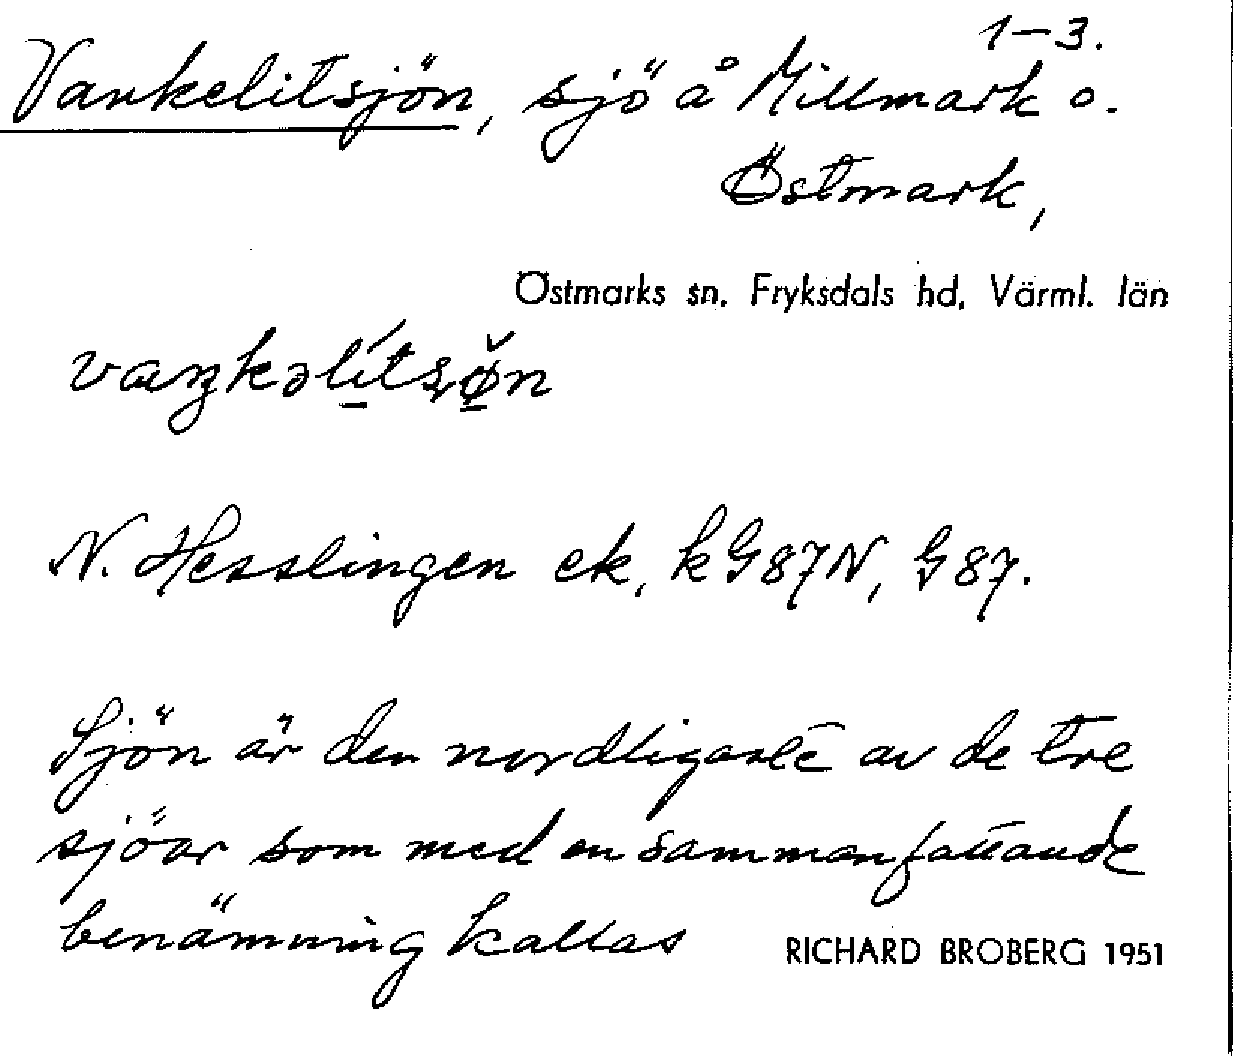 1-3.
Vankelitsjön, sjö å Millmark o.
Östmark,
Östmarks sn. Fryksdals hd, Värml. län
N. Hesslingen ek, kG87N, G87.
Sjön är den nordligaste av de tre
sjöar som med en sammanfattande
benämning kallas
RICHARD BROBERG 1951